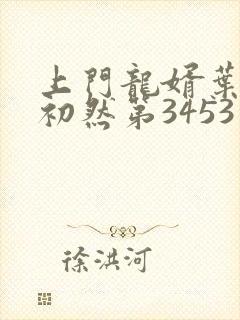 上門龍婿葉
初然第3453
徐洪河